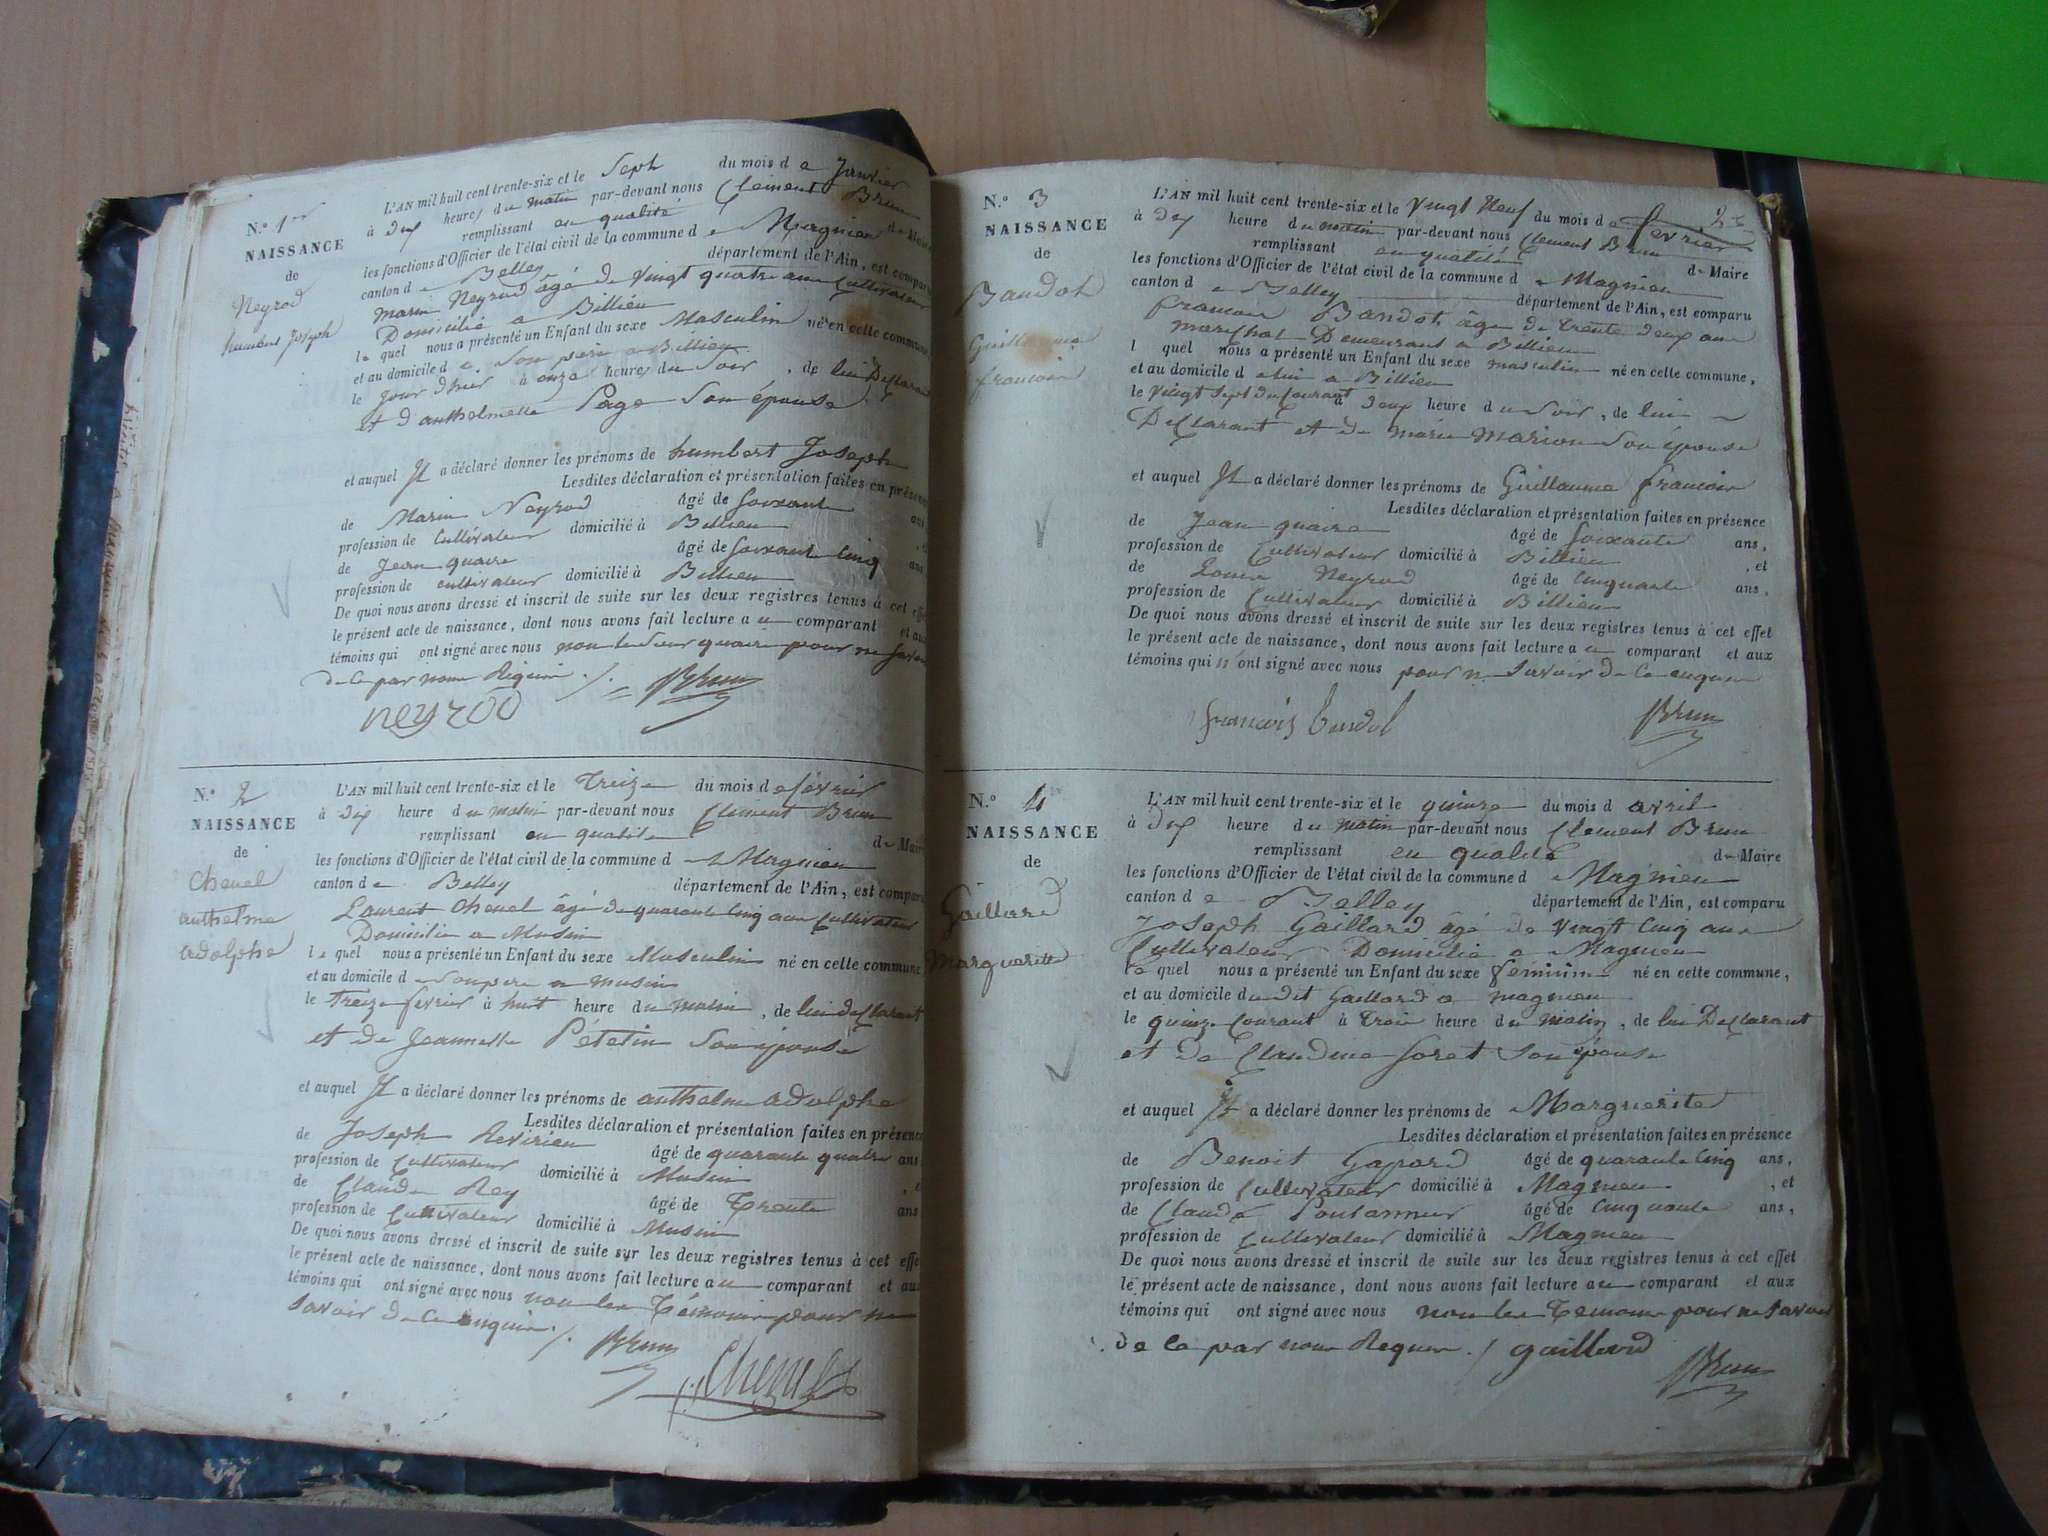 N.° 1er
NAISSANCE
de
Neyrod
humbert Joseph
L'AN mil huit cent trente-six et le Sept du mois de Janvier
à dix heures du matin par-devant nous Clement Brun
remplissant en qualité de Maire
les fonctions d'Officier de l'état civil de la commune de Magnieu
canton de Belley département de l'Ain, est comparu
marin Neyrod âgé de vingt quatre ans Cultivateur
Domicilié a Billieu
le quel nous a présenté un Enfant du sexe Masculin né en cette commune,
et au domicile de son père a Billieu
le jour d'hier à onze heures du Soir, de lui Declarant
et d'anthelmette Page Son épouse
et auquel Il a déclaré donner les prénoms de humbert Joseph
Lesdites déclaration et présentation faites en présence
de Marin Neyrod âgé de soixante ans
profession de Cultivateur domicilié à Billieu, et
de Jean quaire âgé de soixante cinq ans
profession de cultivateur domicilié à Billieu
De quoi nous avons dressé et inscrit de suite sur les deux registres tenus à cet effet
le présent acte de naissance, dont nous avons fait lecture au comparant et aux
témoins qui ont signé avec nous non le sieur quaire pour ne savoir
de ce par nous Réquis ./.
neyrod Brun
N.° 2
NAISSANCE
de
Chenel
anthelme
adolphe
L'AN mil huit cent trente-six et le Treize du mois de février
à dix heure du matin par-devant nous Clement Brun
remplissant en qualité de Maire
les fonctions d'Officier de l'état civil de la commune de Magnieu
canton de Belley département de l'Ain, est comparu
Laurent Chenel âgé de quarante cinq ans Cultivateur
Domicilié a Musin
le quel nous a présenté un Enfant du sexe Masculin né en cette commune
et au domicile de son pere a musin
le Treize fevrier à huit heure du matin, de lui declarant
et de Jeannette Pététin Son épouse
et auquel Il a déclaré donner les prénoms de anthelme adolphe
Lesdites déclaration et présentation faites en présence
de Joseph Revirieu âgé de quarante quatre ans
profession de Cultivateur domicilié à Musin, et
de Claude Rey âgé de Trente ans
profession de Cultivateur domicilié à Musin
De quoi nous avons dressé et inscrit de suite sur les deux registres tenus à cet effet
le présent acte de naissance, dont nous avons fait lecture au comparant et aux
témoins qui ont signé avec nous non les Témoins pour ne
savoir de ce enquis ./. Brun
Chenel
N.° 3
NAISSANCE
de
Baudot
Guillaume
francois
L'AN mil huit cent trente-six et le vingt Neuf du mois de fevrier
à dix heure du matin par-devant nous Clement Brun
remplissant en qualité de Maire
les fonctions d'Officier de l'état civil de la commune de Magnieu
canton de Belley département de l'Ain, est comparu
francois Baudot âgé de trente deux ans
marechal Demeurant a Billieu
l quel nous a présenté un Enfant du sexe masculin né en cette commune,
et au domicile de lui a Billieu
le vingt sept du courant à deux heure du soir, de lui
Declarant et de marie marion son épouse
et auquel Il a déclaré donner les prénoms de Guillaume francois
Lesdites déclaration et présentation faites en présence
de Jean quaire âgé de soixante ans,
profession de Cultivateur domicilié à Billieu, et
de Louis Neyrod âgé de cinquante ans,
profession de Cultivateur domicilié à Billieu
De quoi nous avons dressé et inscrit de suite sur les deux registres tenus à cet effet
le présent acte de naissance, dont nous avons fait lecture au comparant et aux
témoins qui n'ont signé avec nous pour ne savoir de ce enquis
francois Brun
N.° 4
NAISSANCE
de
Gaillard
Marguerite
L'AN mil huit cent trente-six et le quinze du mois d avril
à dix heure du matin par-devant nous Clement Brun
remplissant en qualité de Maire
les fonctions d'Officier de l'état civil de la commune de Magnieu
canton de Belley département de l'Ain, est comparu
Joseph Gaillard âgé de vingt cinq ans
Cultivateur Domicilié a Magnieu
le quel nous a présenté un Enfant du sexe féminin né en cette commune,
et au domicile dudit Gaillard a magnieu
le quinze courant à trois heure du matin, de lui Declarant
et de Claudine soret son épouse
et auquel Il a déclaré donner les prénoms de Marguerite
Lesdites déclaration et présentation faites en présence
de Benoit Gapard âgé de quarante cinq ans,
profession de Cultivateur domicilié à Magnieu, et
de Claude âgé de cinquante ans,
profession de Cultivateur domicilié à Magnieu
De quoi nous avons dressé et inscrit de suite sur les deux registres tenus à cet effet
le présent acte de naissance, dont nous avons fait lecture au comparant et aux
témoins qui ont signé avec nous non les temoins pour ne savoir
de ce par nous Requis ./ gaillard
Brun